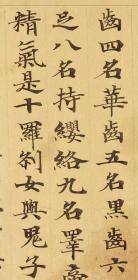 齒四名華齒五名黑齒六
足八名持纓絡九名睪帝
精氣是十羅刹女與鬼子